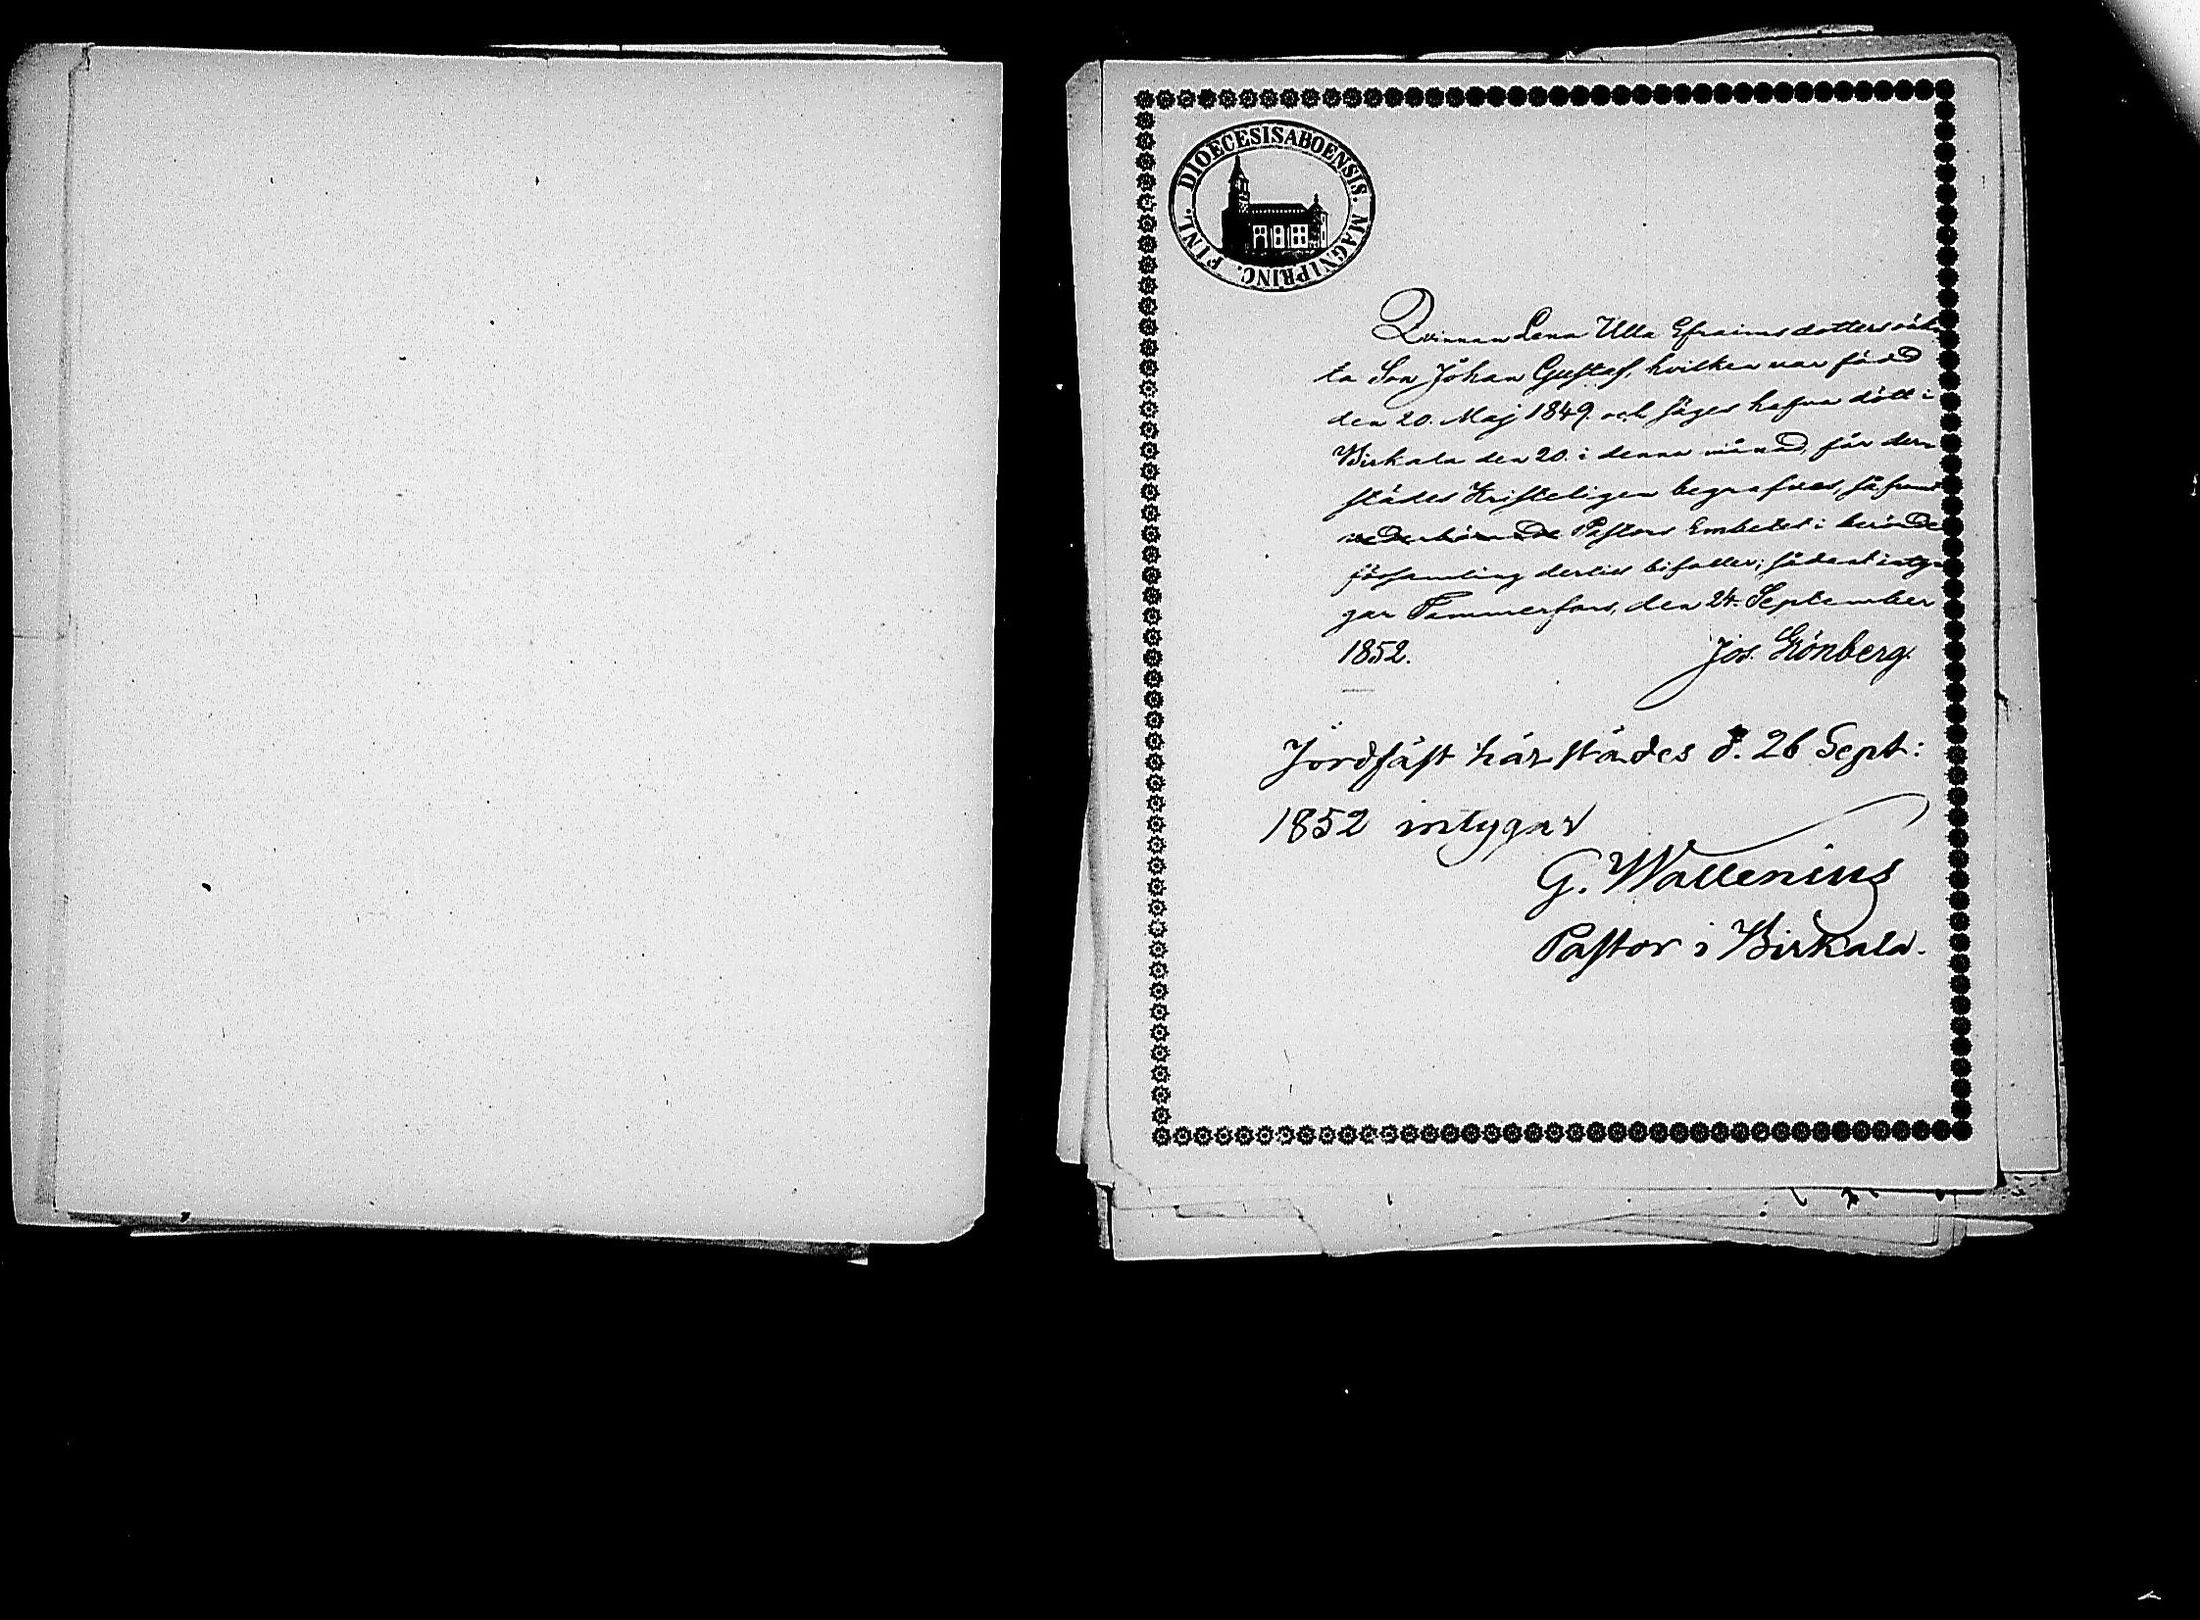 DIOECESIS ABOENSIS. MAGNI PRINC. FINL.
Qvinnan Lena Ulla Efraimsdotters oäk-
ta Son Johan Gustaf, hvilken var född
den 20. Maj 1849. och säges hafva dödt i
Birkala den 20. i denna månad, får der-
städes Kristeligen begrafvas, så framt
vederbörande Pastors Embetet i berörde
församling dertill bifaller; sådant inty-
gar Tammerfors, den 24. September
1852. Jos. Grönberg.
Jordfäst härstädes d. 26 Sept:
1852 intygar
G. Wallenius
Pastor i Birkala.